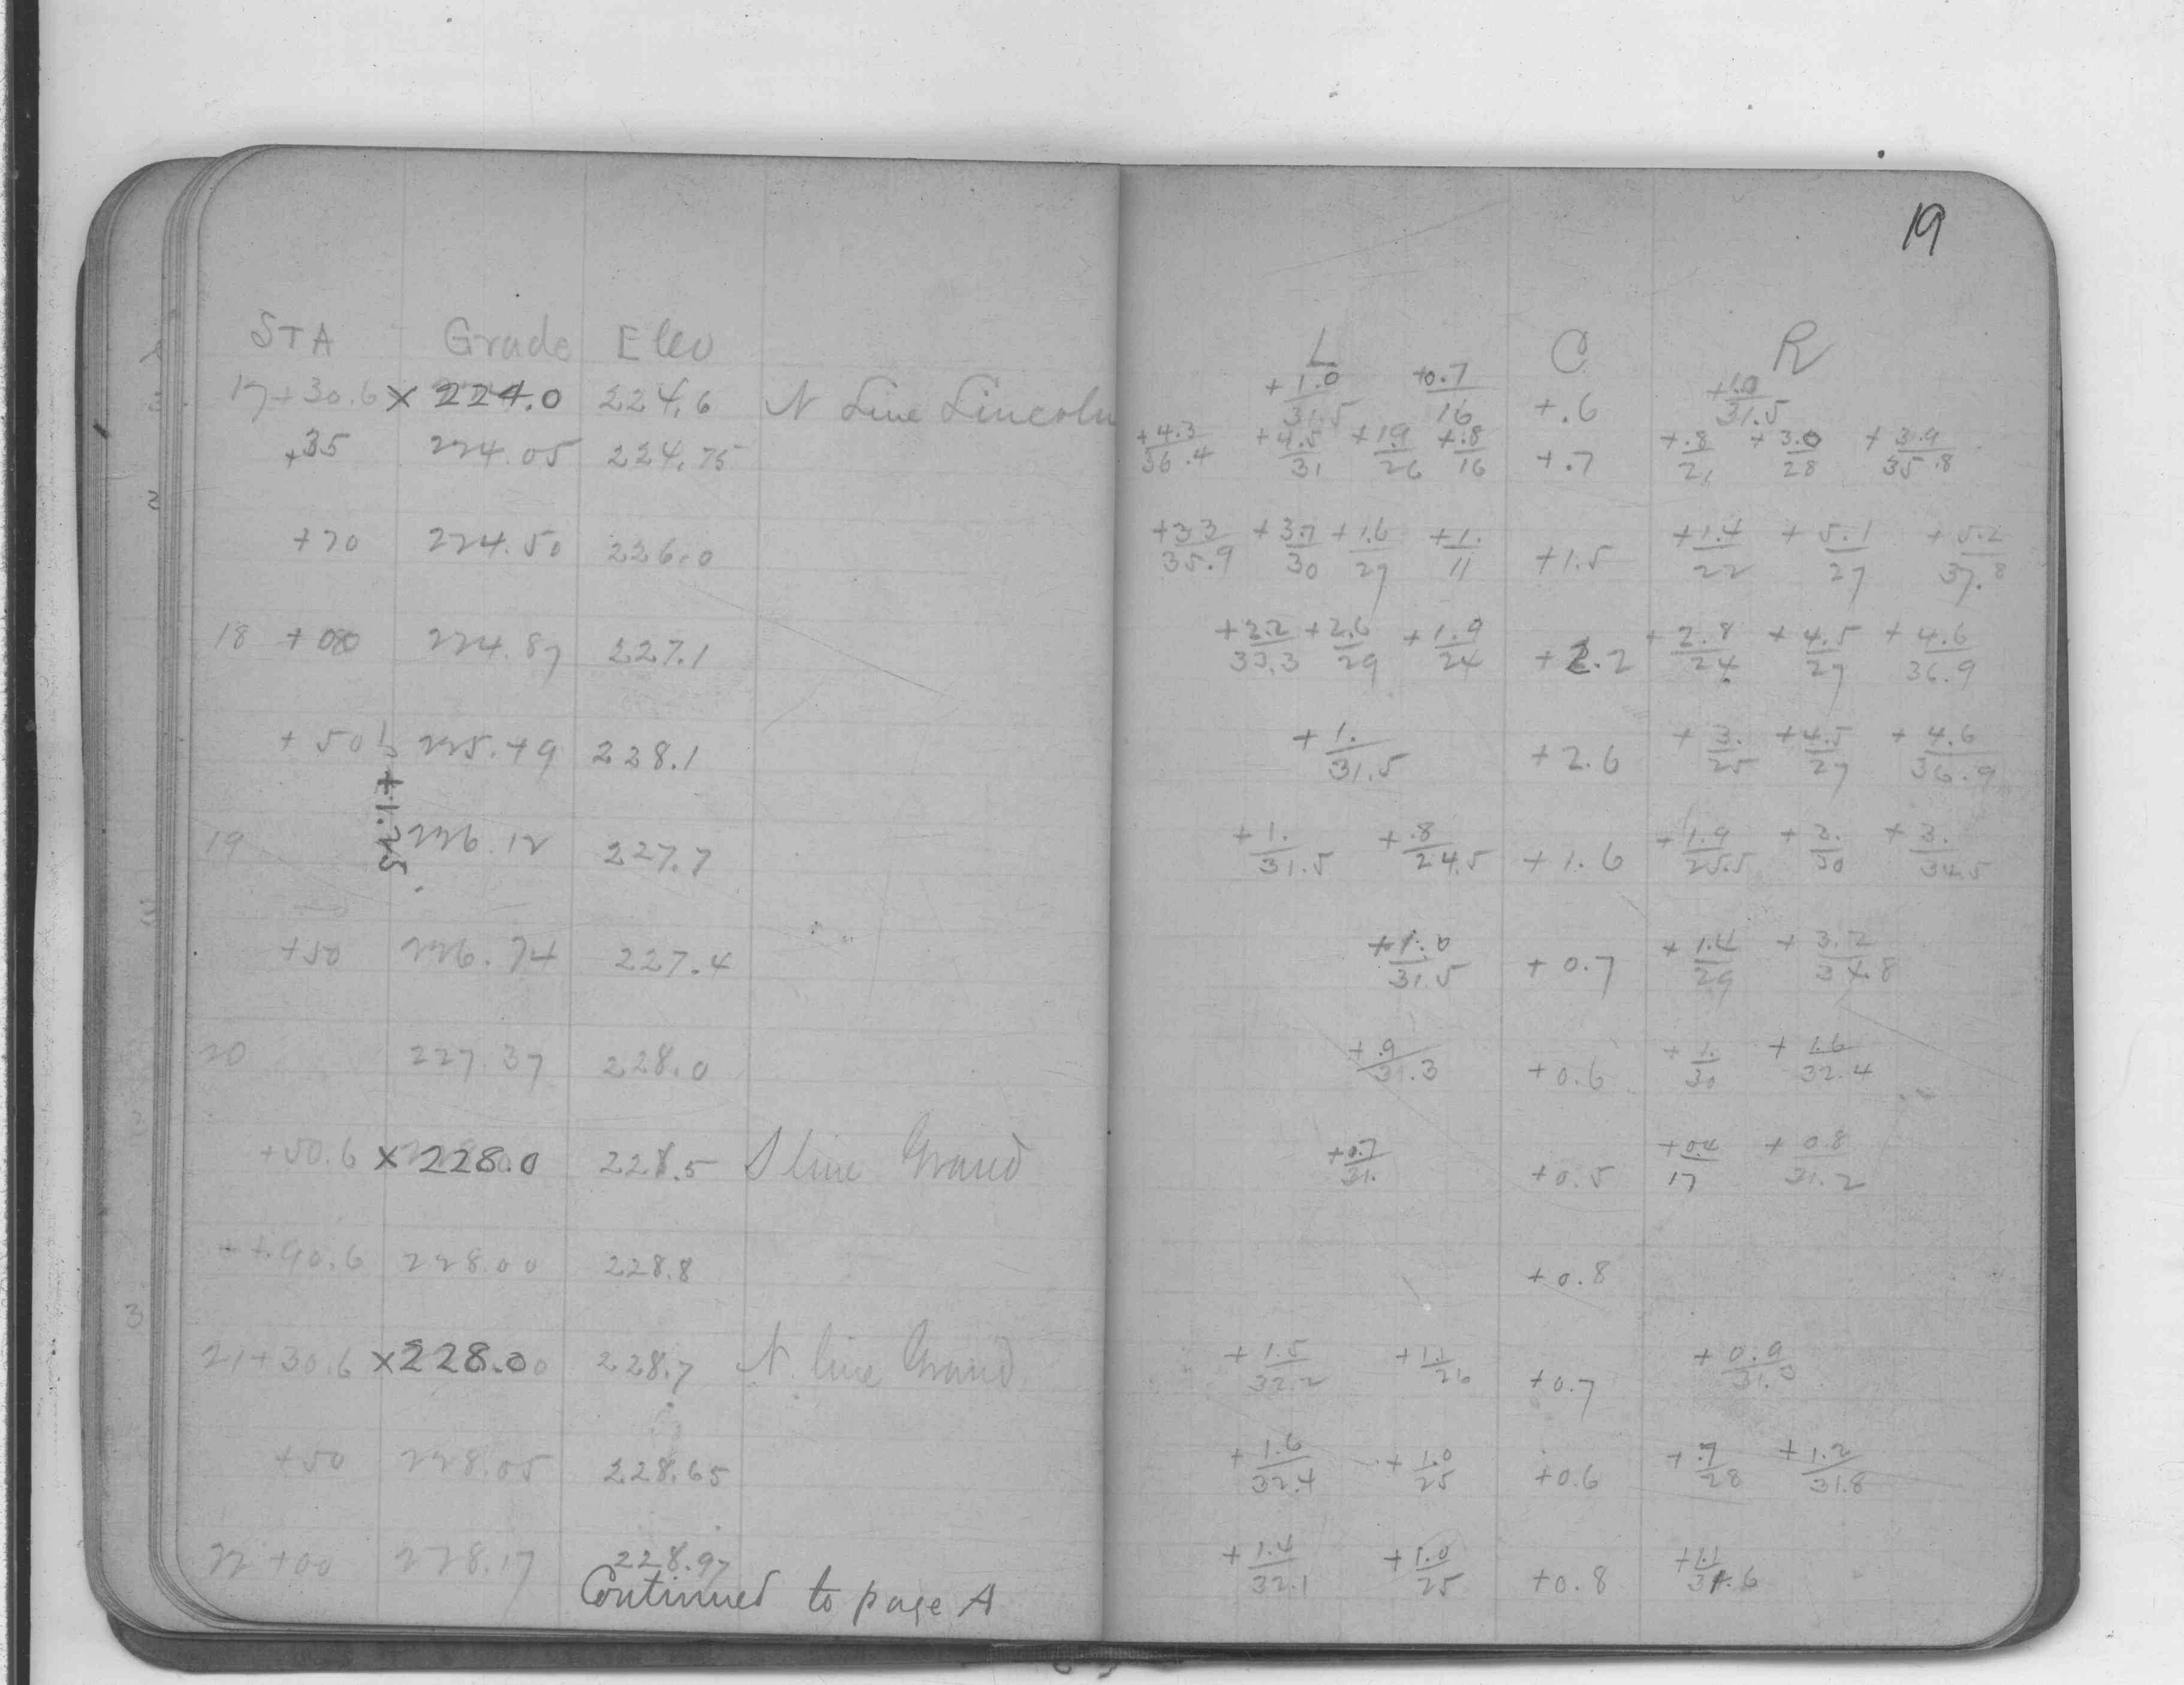 19
STA Grade Elev L C R
17+30.6 x 224.0 224.6 N Line Lincoln +1.0/31.5 +0.7/16 +.6 +1.0/31.5
+35 224.05 224.75 +4.3/36.4 +4.5/31 +1.9/26 +.8/16 +.7 +.8/21 +3.0/28 +3.9/35.8
+70 224.50 226.0 +3.3/35.9 +3.7/30 +1.6/27 +1./11 +1.5 +1.4/22 +5.1/27 +5.2/37.8
18 +00 224.87 227.1 +2.2/33.3 +2.6/29 +1.9/24 +2.2 +2.8/24 +4.5/27 +4.6/36.9
+50 225.49 228.1 +1./31.5 +2.6 +3./25 +4.5/27 +4.6/36.9
+1.25
19 226.12 227.7 +1./31.5 +.8/24.5 +1.6 +1.9/25.5 +3./30 +3./34.5
+50 226.74 227.4 +1.0/31.5 +0.7 +1.4/29 +3.2/34.8
20 227.37 228.0 +.9/31.3 +0.6 +1./30 +1.6/32.4
+50.6 x 228.0 228.5 S line Grand +0.7/31. +0.5 +0.4/17 +0.8/31.2
++90.6 228.00 228.8 +0.8
21+30.6 x 228.00 228.7 N. line Grand +1.5/32.2 +1.1/26 +0.7 +0.9/31.3
+50 228.05 228.65 +1.6/32.4 +1.0/25 +0.6 +.7/28 +1.2/31.8
22+00 228.17 228.97 +1.4/32.1 +1.0/25 +0.8 +1.1/31.6
Continued to page A